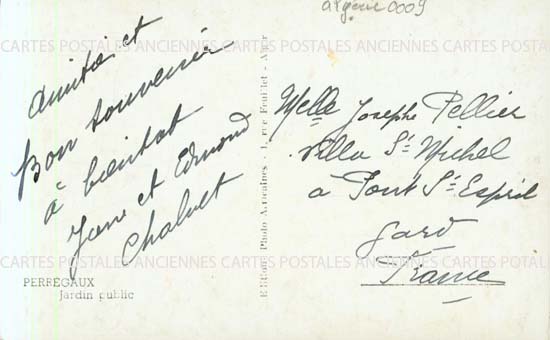 algérie 0009
CARTES POSTALES ANCIENNES CARTES POSTALES ANCIENNES CARTES POTALES
Amitié et
Bon souvenir
à bientot
Jane et Edmond
Chaluet
PERRÉGAUX
Jardin public
Editions Photo Africaines - 1, rue Feuillet - Alger
Melle Josephe Pellier
Villa St Michel
a Pont St Esprit
Gard
France
CARTES POSTALES ANCIENNES CARTES POSTALES ANCIENNES CARTES POTALES